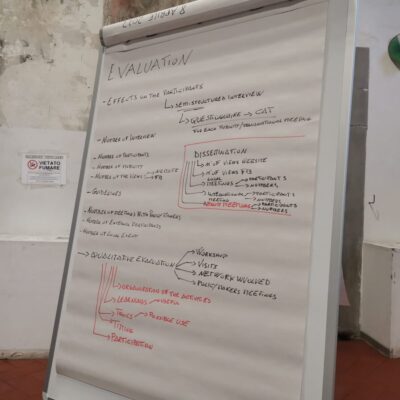 EVALUATION
- EFFECTS ON THE PARTICIPANTS
SEMISTRUCTURED INTERVIEW
QUESTIONNAIRE → CAT
FOR EACH MOBILITY/TRANSNATIONAL MEETING
- NUMBER OF INTERVIEW
- NUMBER OF PARTICIPANTS
- NUMBER OF MOBILITY
- NUMBER OF THE VIEWS WEBSITE
FB
- GUIDELINES
- NUMBER OF MEETINGS WITH POLICY MAKERS
- NUMBER OF EXTERNAL PARTICIPANTS
- NUMBER OF LOCAL EVENT
DISSEMINATION
N° OF VIEWS WEBSITE
N° OF VIEWS FB
LOCAL MEETINGS PARTICIPANTS
NUMBERS
INTERNATIONAL MEETING PARTICIPANTS
NUMBERS
MEETINGS PARTICIPANTS
NUMBERS
→ QUALITATIVE EVALUATION
WORKSHOP
VISITS
NETWORK INVOLVED
POLICY MAKERS MEETINGS
ORGANIZATION OF THE ACTIVITIES
LEARNINGS → USEFUL
TOOLS → POSSIBLE USE
TIMING
PARTICIPATION
VIETATO
FUMARE